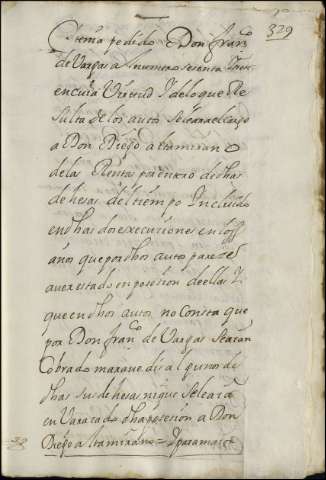 329
tiene pedido Don fran.co
de Vargas a le numero sesenta y tres
en cuia Virtud y delo que Re
sulta de los autos se le ara el cargo
a Don Diego altamirano
de las Rentas que entró de dhas
dehesas del tiempo Incluido
en dhas dos execuciones en los
años que por dhos autos parece
aver estado en posesion de ellas y
que en dhos autos no Consta que
por Don fran.co de Vargas se aian
Cobrado maravedis algunos de
dhas sus dehesas ni que se le aia
en Varazado dha posesion a Don
Diego altamirano = y para maior